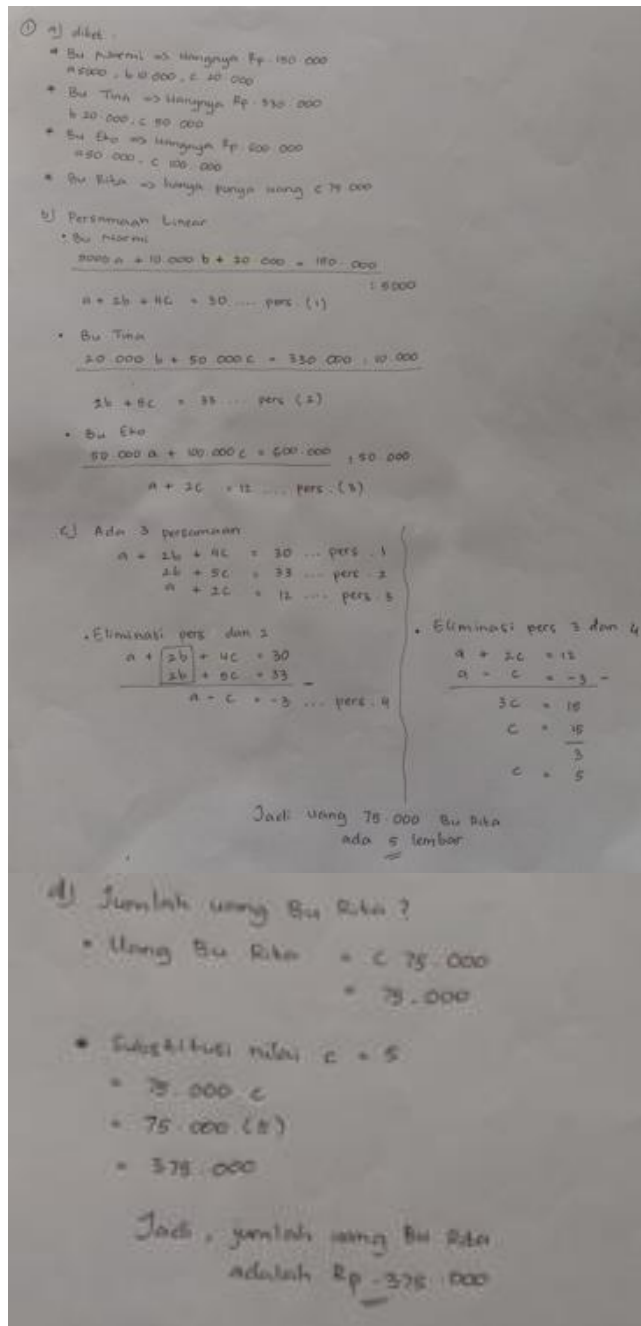 ① a) diket.
* Bu Normi => Uangnya Rp. 150.000
a 5000, b 10.000, c 20.000
* Bu Tina => Uangnya Rp. 330.000
b 20.000, c 50.000
* Bu Eko => Uangnya Rp. 600.000
a 50.000, c 100.000
* Bu Rita => hanya punya uang c 75.000
b) Persamaan Linear
• Bu Normi
5000 a + 10.000 b + 20.000 = 150.000
: 5000
a + 2b + 4c = 30 .... pers. (1)
• Bu Tina
20.000 b + 50.000 c = 330.000 : 10.000
2b + 5c = 33 ... pers (2)
• Bu Eko
50.000 a + 100.000 c = 600.000 : 50.000
a + 2c = 12 .... pers. (3)
c) Ada 3 persamaan
a + 2b + 4c = 30 ... pers. 1
2b + 5c = 33 .... pers. 2
a + 2c = 12 .... pers. 3
• Eliminasi pers dan 2
a + 2b + 4c = 30
2b + 5c = 33 -
a - c = -3 ... pers. 4
• Eliminasi pers 3 dan 4
a + 2c = 12
a - c = -3 -
3c = 15
c = 15
3
c = 5
Jadi uang 75.000 Bu Rita
ada 5 lembar
d) Jumlah uang Bu Rita?
• Uang Bu Rita = c 75.000
= 75.000
• Substitusi nilai c = 5
= 75.000 c
= 75.000 (5)
= 375.000
Jadi, jumlah uang Bu Rita
adalah Rp. 375.000